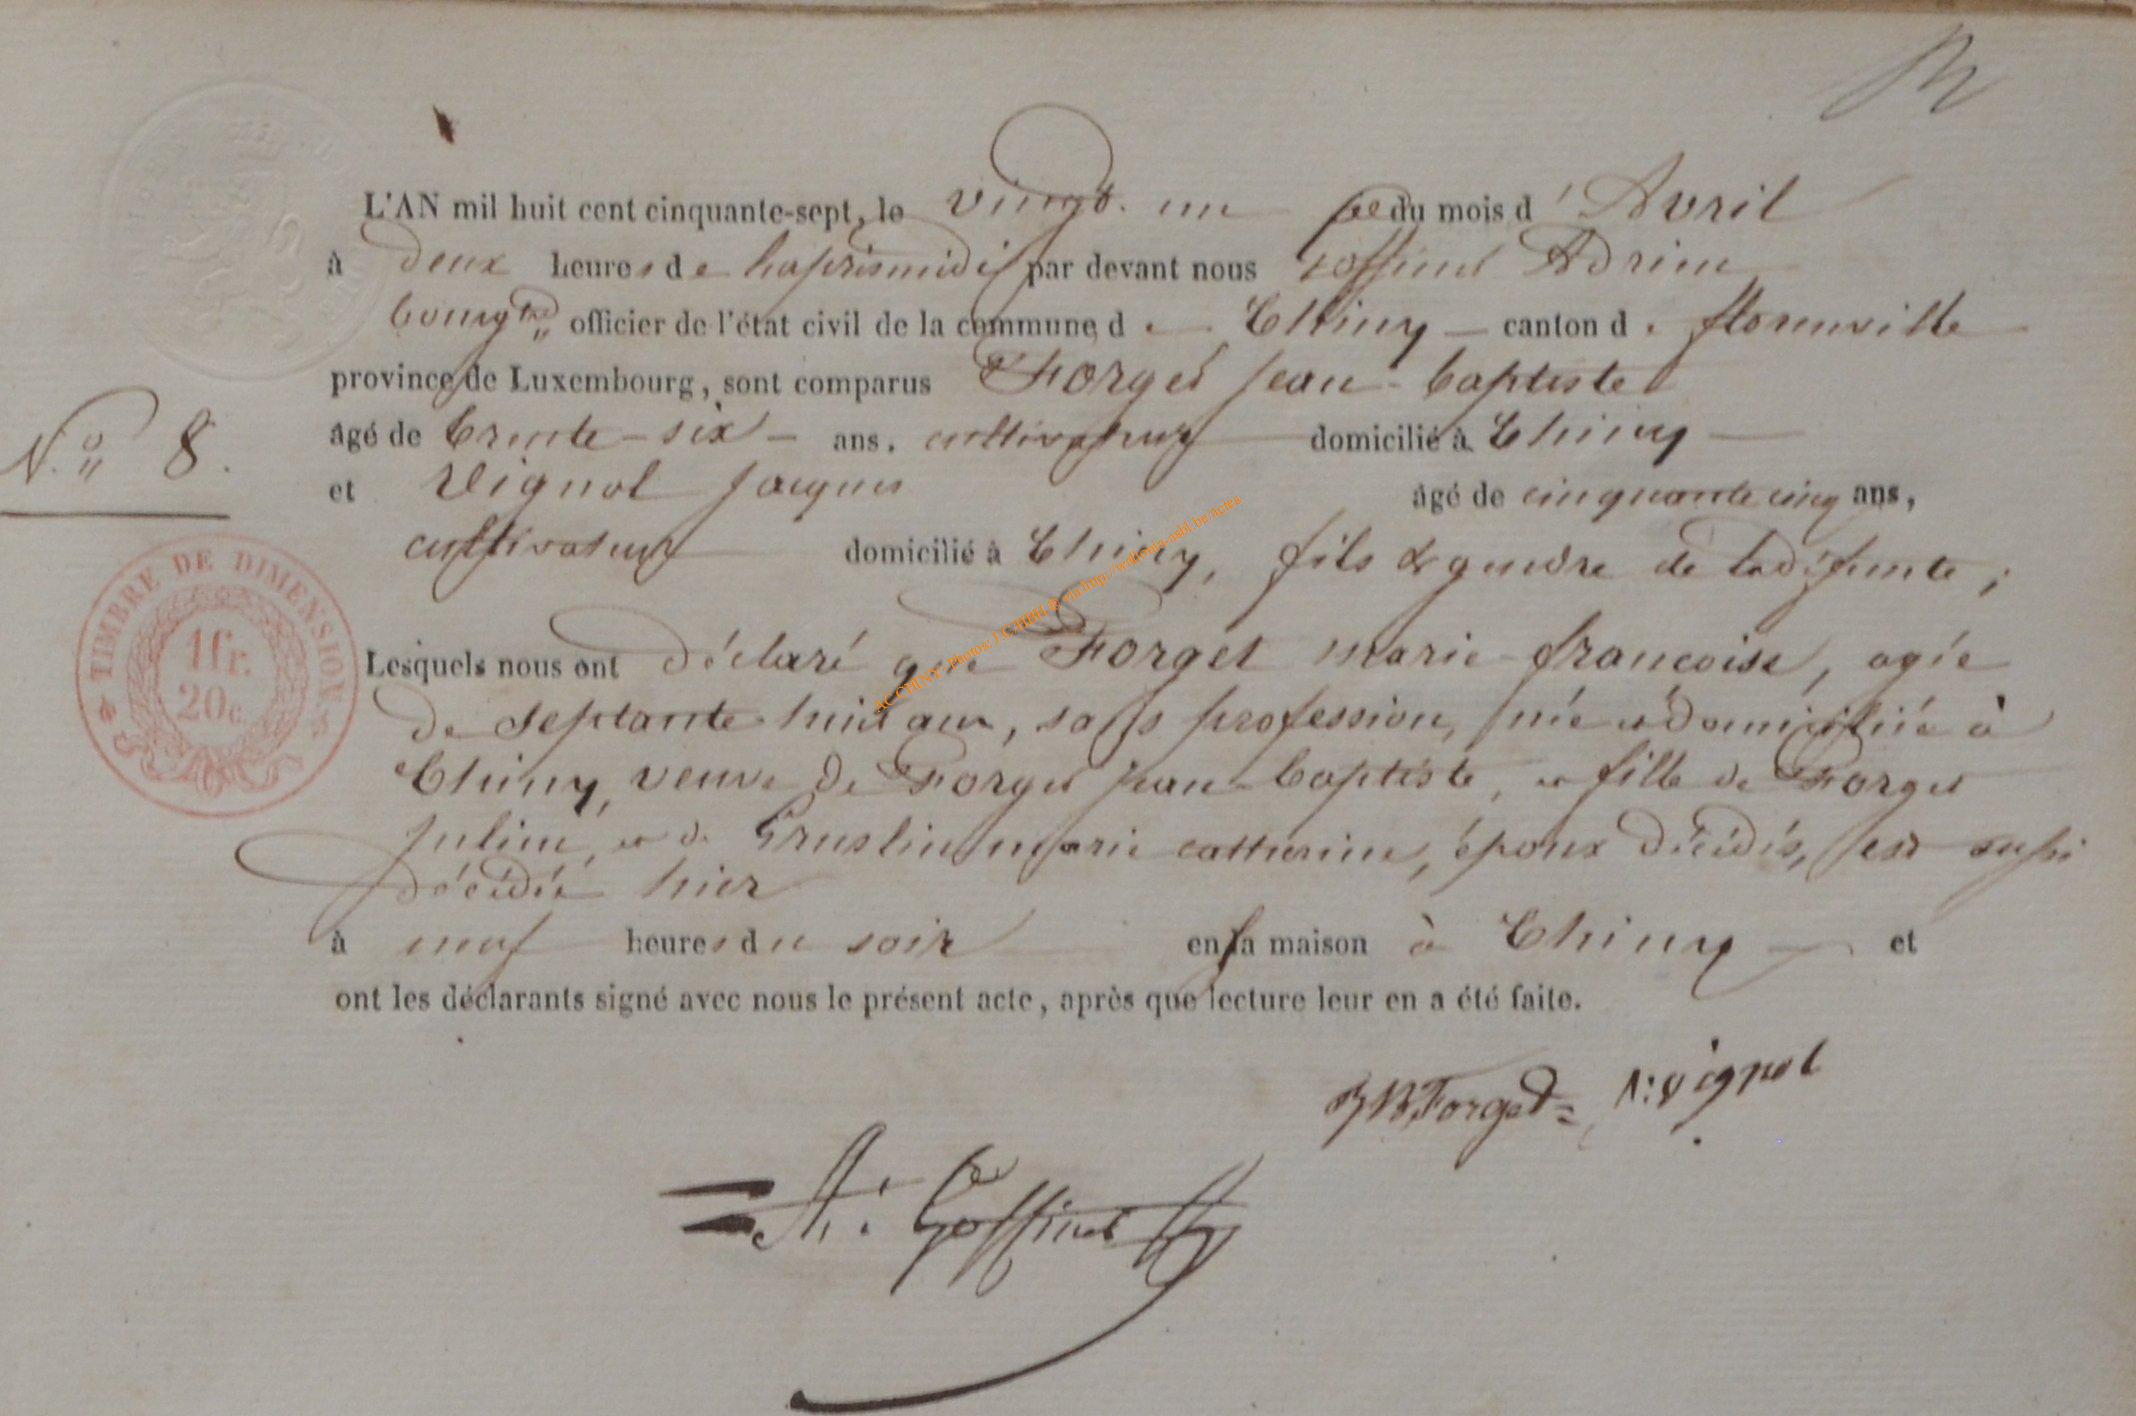 L'AN mil huit cent cinquante-sept, le vingt-un du mois d'Avril
à deux heures de l'aprèsmidi par devant nous Goffinet Adrien
bourgtre officier de l'état civil de la commune de Chiny canton de florenville
province de Luxembourg, sont comparus Forget jean-baptiste
N.° 8.
âgé de trente-six ans, cultivateur domicilié à Chiny
et Vignol jacques âgé de cinquante cinq ans,
cultivateur domicilié à Chiny, fils & gendre de la défunte ;
TIMBRE DE DIMENSION
1fr.
20c.
Lesquels nous ont déclaré que Forget marie-francoise, agée
de septante-huit ans, sans profession, née et domiciliée à
Chiny, veuve de Forget jean-baptiste, et fille de Forget
julien, et de Gruslin marie catherine, époux décédés, est
décédée hier
à neuf heures du soir en sa maison à Chiny et
ont les déclarants signé avec nous le présent acte, après que lecture leur en a été faite.
JBForget J: vignol
A: Goffinet